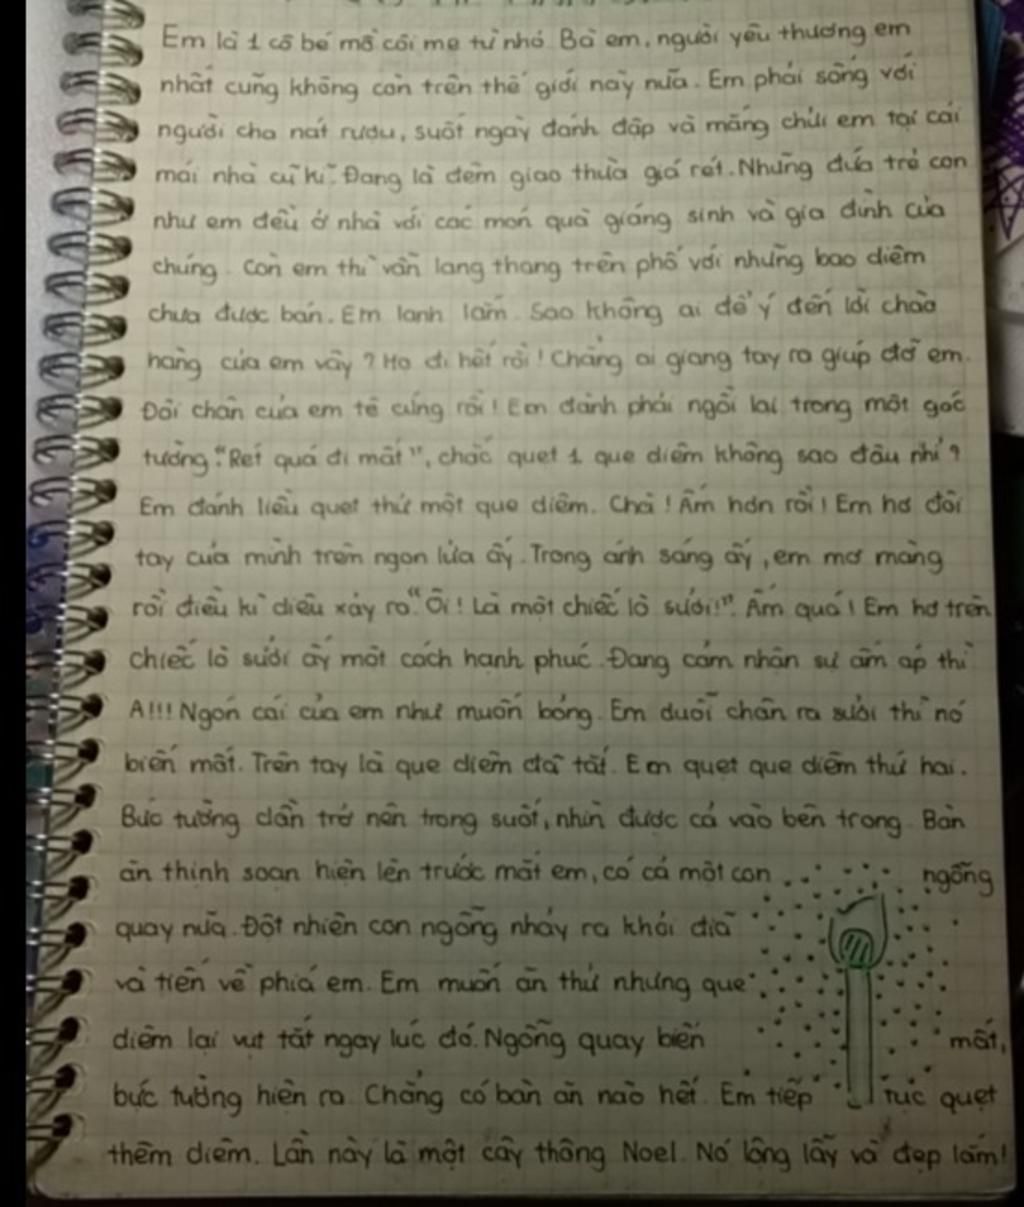 Em là 1 cô bé mồ côi mẹ từ nhỏ. Bà em, người yêu thương em
nhất cũng không còn trên thế giới này nữa. Em phải sống với
người cha nát rượu, suốt ngày đánh đập và mắng chửi em tại cái
mái nhà cũ kĩ. Đang là đêm giao thừa giá rét. Những đứa trẻ con
như em đều ở nhà với các món quà giáng sinh và gia đình của
chúng. Còn em thì vẫn lang thang trên phố với những bao diêm
chưa được bán. Em lạnh lắm. Sao không ai để ý đến lời chào
hàng của em vậy? Họ đi hết rồi! Chẳng ai giang tay ra giúp đỡ em.
Đôi chân của em tê cứng rồi! Em đành phải ngồi lại trong một góc
tường. "Rét quá đi mất", chắc quẹt 1 que diêm không sao đâu nhỉ?
Em đánh liều quẹt thử một que diêm. Chà! Ấm hơn rồi! Em hơ đôi
tay của mình trên ngọn lửa ấy. Trong ánh sáng ấy, em mơ màng
rồi điều kì diệu xảy ra "Ôi! Là một chiếc lò sưởi!". Ấm quá! Em hơ trên
chiếc lò sưởi ấy một cách hạnh phúc. Đang cảm nhận sự ấm áp thì
A!!! Ngón cái của em như muốn bỏng. Em duỗi chân ra sưởi thì nó
biến mất. Trên tay là que diêm đã tắt. Em quẹt que diêm thứ hai.
Bức tường dần trở nên trong suốt, nhìn được cả vào bên trong. Bàn
ăn thịnh soạn hiện lên trước mắt em, có cả một con ngỗng
quay nữa. Đột nhiên con ngỗng nhảy ra khỏi đĩa
và tiến về phía em. Em muốn ăn thử nhưng que
diêm lại vụt tắt ngay lúc đó. Ngỗng quay biến mất,
bức tường hiện ra. Chẳng có bàn ăn nào hết. Em tiếp tục quẹt
thêm diêm. Lần này là một cây thông Noel. Nó lộng lẫy và đẹp lắm!